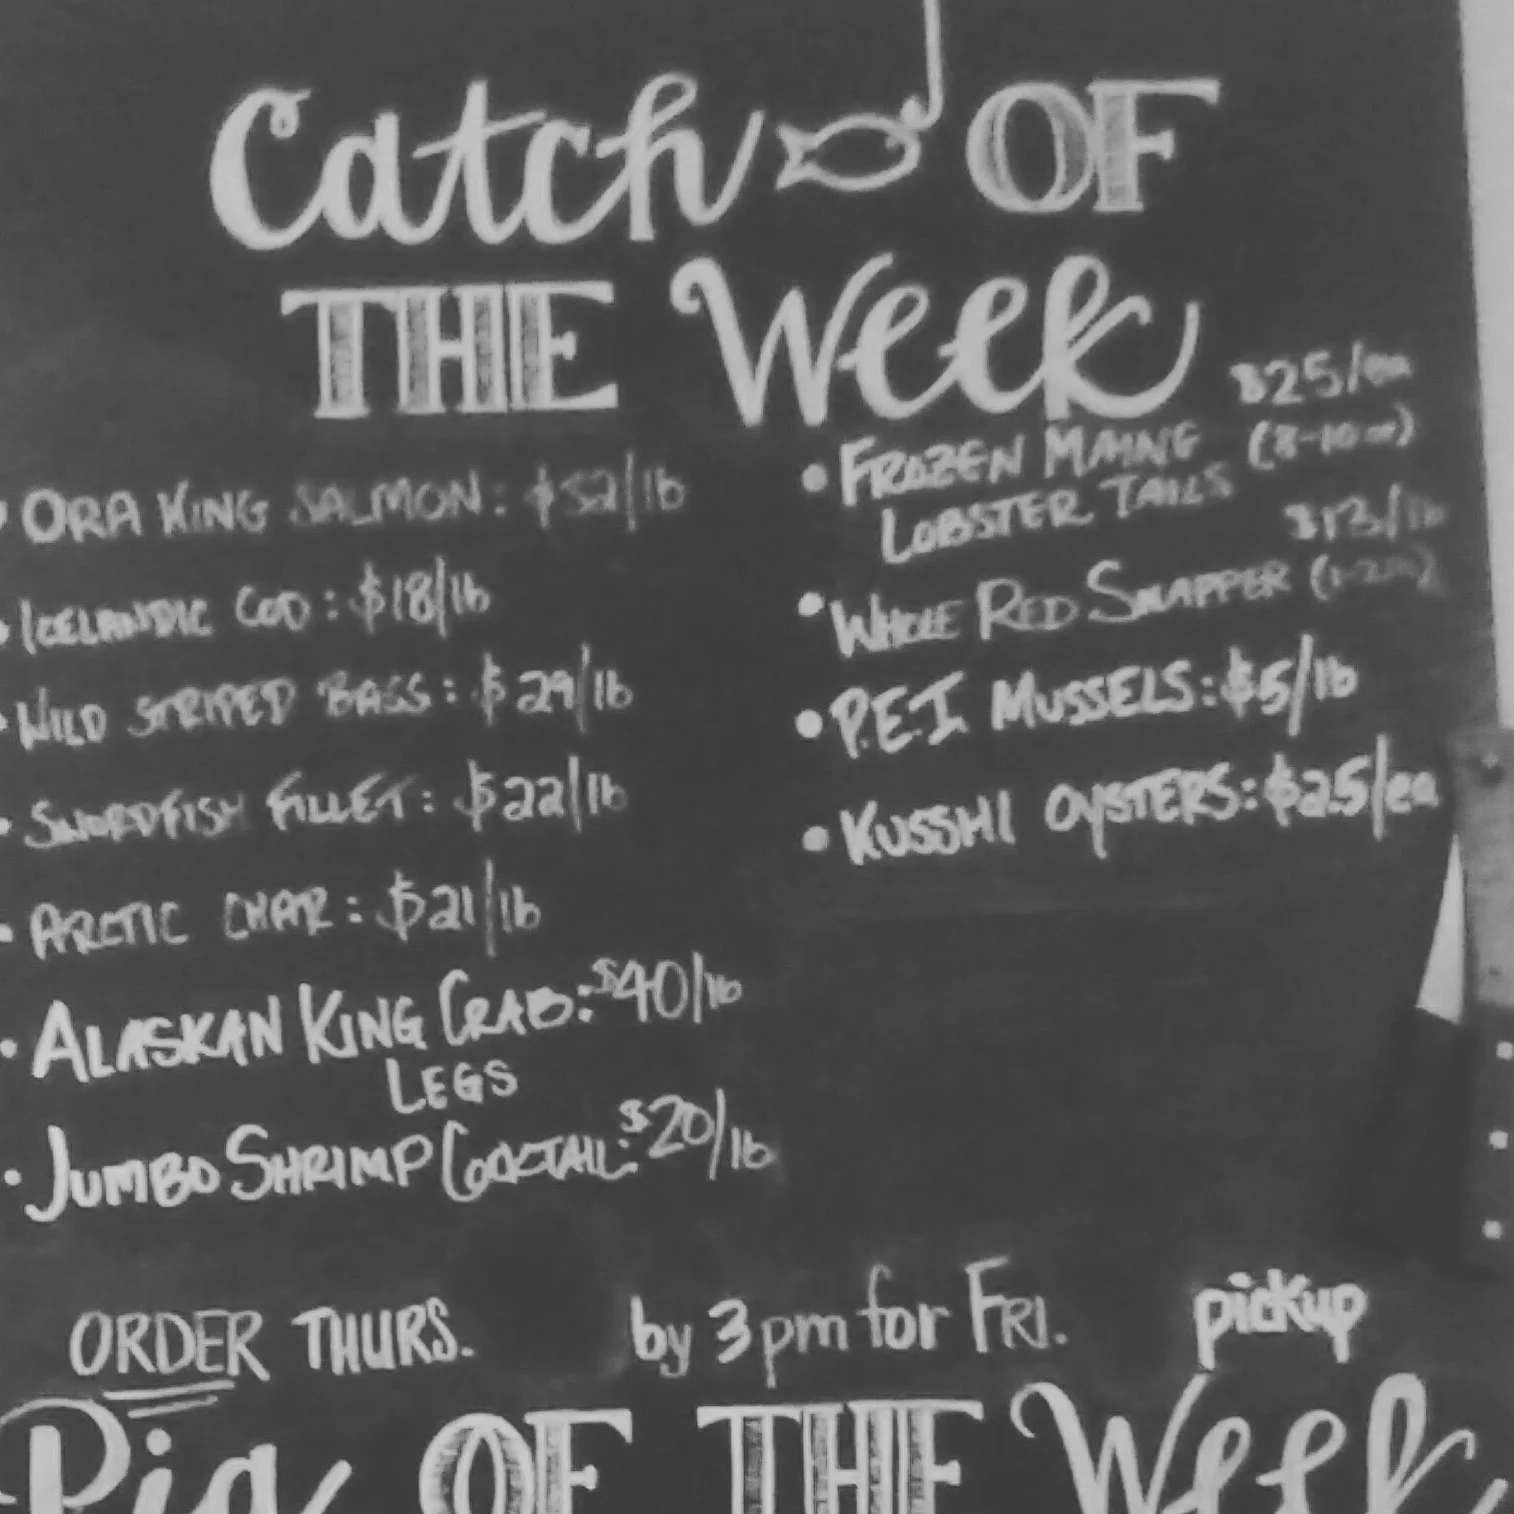 Catch OF
THE Week
• ORA KING SALMON: $52/lb
• ICELANDIC COD: $18/lb
• WILD STRIPED BASS: $29/lb
• SWORDFISH FILLET: $22/lb
• ARCTIC CHAR: $21/lb
• ALASKAN KING CRAB: $40/lb
LEGS
• JUMBO SHRIMP COCKTAIL: $20/lb
$25/ea
• FROZEN MAINE (8-10oz)
LOBSTER TAILS
$13/lb
• WHOLE RED SNAPPER
• P.E.I MUSSELS: $5/lb
• KUSSHI OYSTERS: $2.5/ea
ORDER THURS. by 3pm for FRI. pickup
Pig OF THE Week